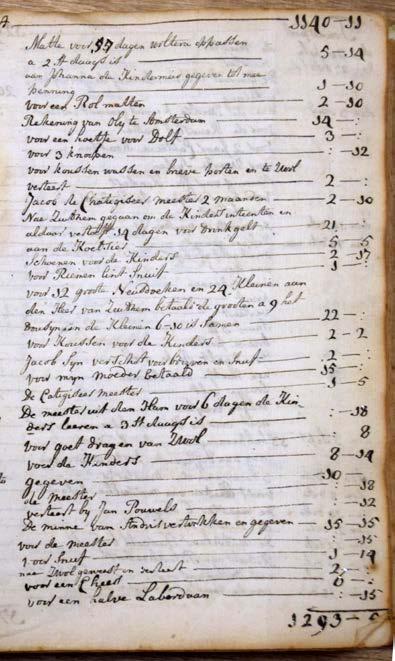 1140-11
Matte voor 57 dagen woltera oppassen
a 2 st daags is 5-14
aan Johanna de Kindermeis gegeven tot mee
penning 1-10
voor een Rol matten 2-10
Rekening van Oly te Amsterdam 14-:
voor een hoetje voor Dolf 3-:
voor 3 knopen :-12
voor koussen wassen en brieve porten en te Zwol
verteert 2-:
Jacob de Categiseer meester 2 maanden 2-10
Nae Zuithem gegaan om de Kinders inteenten en
aldaer vertoeft 14 dagen voor drinkgelt 21-:
aan de Koetsier 5-5
Schoenen voor de Kinders 2-17
voor Riemen lint Snuif 1-:
voor 12 groote Neusdoeken en 24 Kleinen aan
den Heer van Zuithem betaalt de grooten a 9 het
Dousyn en de Kleinen 6-10 is Samen 22-:
voor Koussen voor de Kinders 2-2
Jacob Syn verschot voor brieven en Snuf 2-:
voor myn moeder betaald 15-:
De Catigiseer meester 1-5
De meester uit den Ham voor 6 dagen de Kin-
ders leeren a 3 st daags is :-18
voor goet dragen van Zwol :-8
voor de Kinders 8-14
gegeven 10-:
de Meester :-18
verteert by Jan Pouwels :-12
De minne van Andris vertrokken en gegeven 15-15
voor de meester :-15
1 oor Snuif 1-14
nae Zwol geweest en verteert 2-:
voor een Cheest 6-:
voor een halve Laberdaan :-15
1293-5